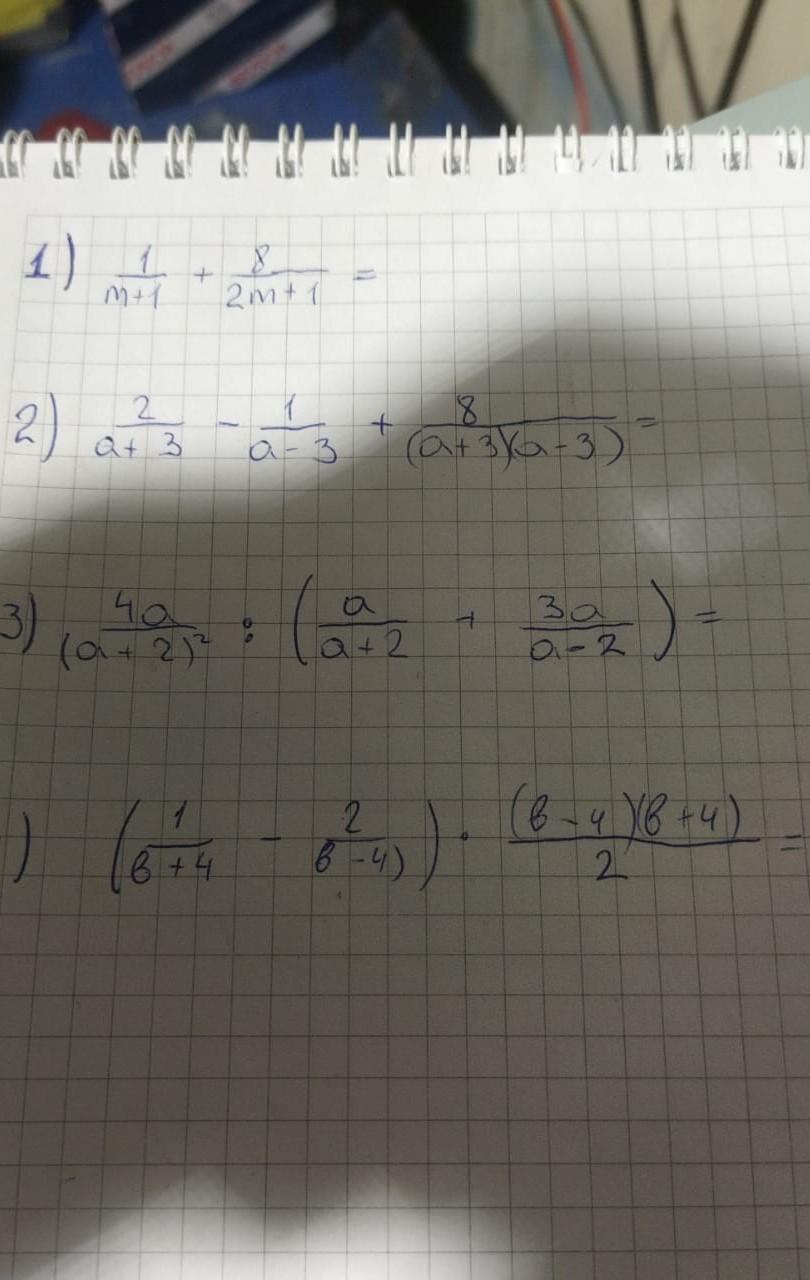 1) 1/(m+1) + 8/(2m+1) =
2) 2/(a+3) - 1/(a-3) + 8/((a+3)(a-3)) =
3) 4a/(a+2)² : (a/(a+2) + 3a/(a-2)) =
) (1/(в+4) - 2/(в-4))) · (в-4)(в+4)/2 =